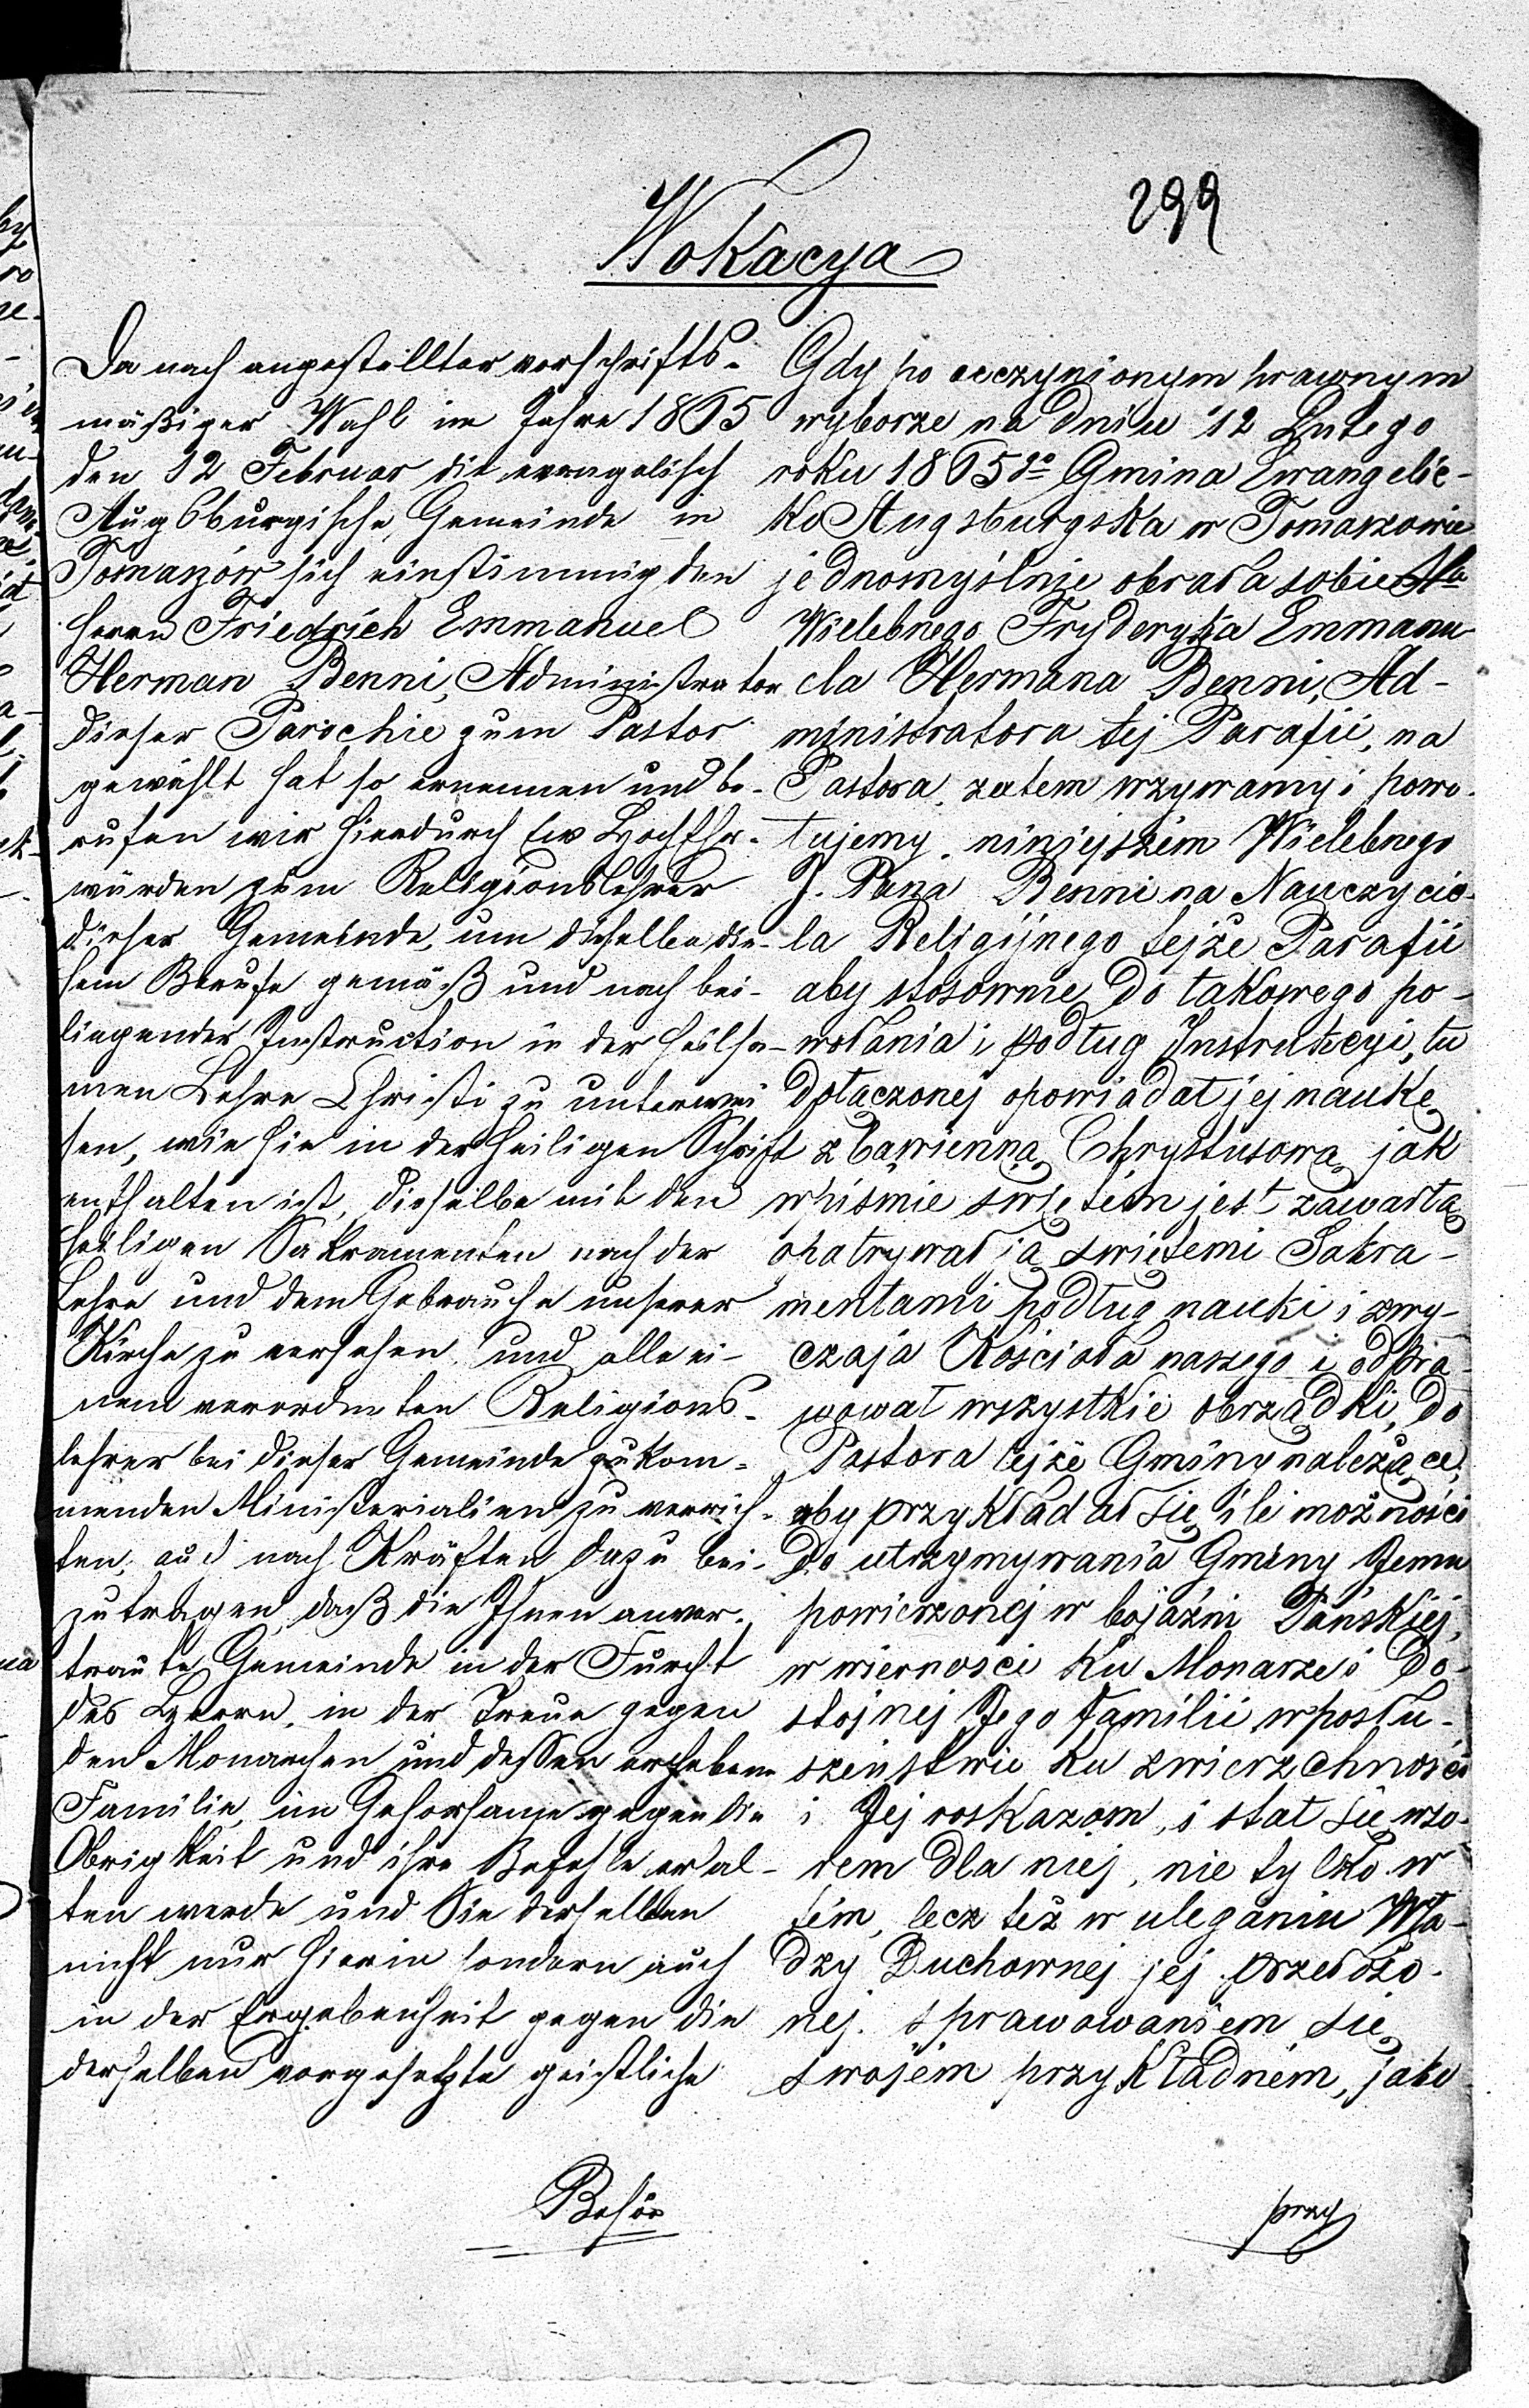 299
Wokacya
Da nach angestellter vorschrifts-
mäßiger Wahl im Jahre 1865
den 12 Februar die evangelisch
Augsburgische Gemeinde in
Tomaszów sich einstimmig den
Herrn Friedrich Emmanuel
Herman Benni, Administrator
dieser Parochie zum Pastor
gewählt hat so ernennen und be-
rufen wir hierdurch Ew Hochehr-
würden zum Religionslehrer
dieser Gemeinde, um dieselbe die-
sem Berufe gemäß und nach bei-
liegender Instruction in der heilsa-
men Lehre Christi zu unterwei
sen, wie sie in der heiligen Schrift
enthalten ist, dieselbe mit den
heiligen Sakramenten nach der
Lehre und dem Gebrauche unserer
Kirche zu versehen und alle ei-
nem verordneten Religions-
lehrer bei dieser Gemeinde zukom-
menden Ministerialien zu verrich-
ten, auch nach Kräften dazu bei-
zutragen, daß die Ihnen anver-
traute Gemeinde in der Furcht
des Herrn, in der Treue gegen
den Monarchen und dessen erhabene
Familie, im Gehorsame gegen die
Obrigkeit und ihre Befehle erhal-
ten werde und Sie derselben
nicht nur hierin sondern auch
in der Ergebenheit gegen die
derselben vorgesetzte geistliche
Behör
Gdy po uczynionym prawnym
wyborze na dniu 12 Lutego
roku 1865go Gmina Ewangelic-
ko Augsburgska w Tomaszowie
jednomyślnie obrała sobie
Wielebnego Fryderyka Emmanu
ela Hermana Benni, Ad-
ministratora tej Parafii, na
Pastora, zatem wzywamy i powo-
łujemy niniejszém Wielebnego
J. Pana Benni na Nauczycie-
la Religijnego tejże Parafii
aby stosownie do takowego po-
wołania i podług Instrukcyi, tu
dołączonej opowiadał jej naukę
zbawienną Chrystusową, jak
w piśmie świętém jest zawarta
opatrywał ją świętemi Sakra-
mentami podług nauki i zwy-
czaja Kościoła naszego i odpra-
wował wszystkie obrządki, do
Pastora tejże Gminy należące,
aby przykładał się ile możności
do utrzymywania Gminy Jemu
powierzonej w bojaźni Pańskiej,
w wierności ku Monarze i Do-
stojnej Jego Familii w posłu-
szeństwie ku zwierzchności
i Jej roskazom, i stał się wzo-
rem dla niej, nie tylko w
tém, lecz też w uleganiu Wła-
dzy Duchownej jej przełożo-
nej. sprawowaniem się
swojém przykładném, jako
przy